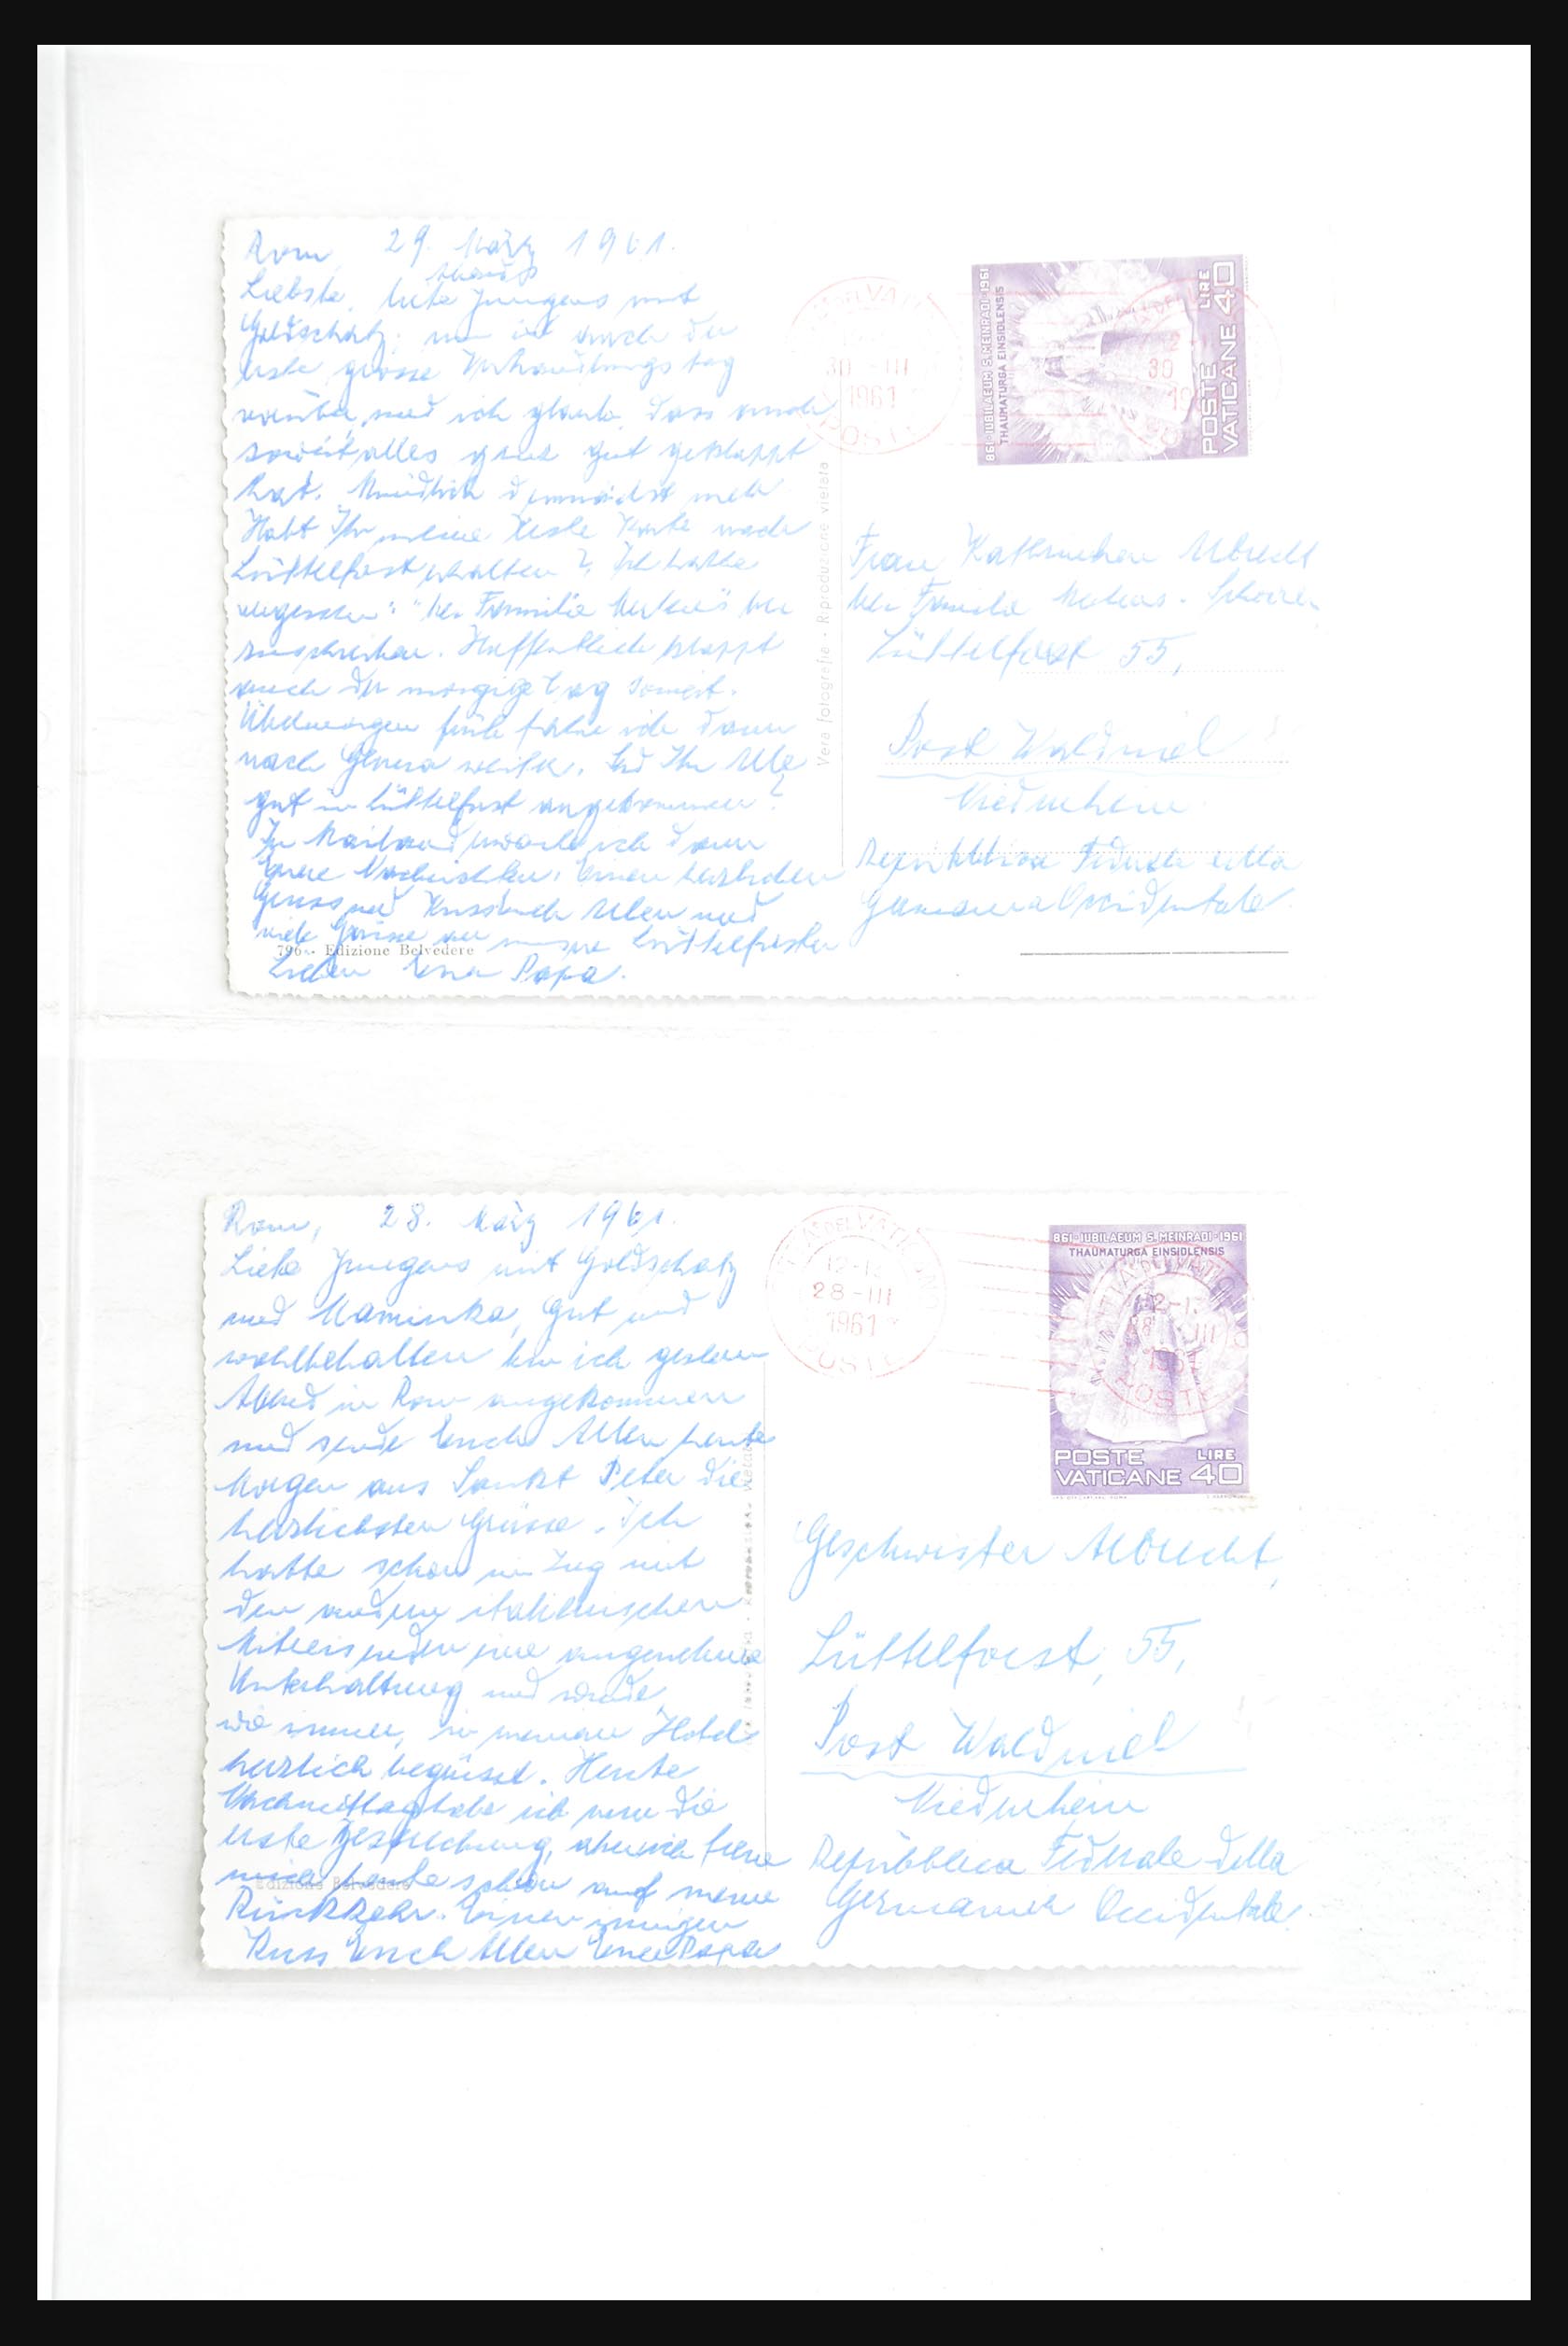 Rom, 29. März 1961.
abends
Liebste, liebe Jungens mit
Goldschatz; nun ist auch der
erste grosse Verhandlungstag
vorüber, und ich glaube, dass auch
soweit alles ganz gut geklappt
hat. Mündlich demnächst mehr
Habt Ihr meine erste Karte nach
Lüttelforst erhalten? Ich hatte
vergessen: "bei Familie
zuschreiben. Hoffentlich klappt
auch der morgige Tag soweit.
Übermorgen früh fahre ich dann
nach Genova weiter. Seid Ihr Alle
gut in Lüttelforst angekommen?
In Mailand erwarte ich dann
Eure Nachrichten. Einen herzlichen
Gruss und Kuss Euch Allen und
viele Grüsse an unsere Lüttelforster
Lieben Euer Papa.
796 - Edizione Belvedere
Vera fotografia - Riproduzione vietata
CITTÀ DEL VATICANO
30 - III
1961
POSTE
861 - IUBILAEUM S. MEINRADI - 1961
THAUMATURGA EINSIDLENSIS
POSTE VATICANE
LIRE 40
Frau Kathrinchen Albrecht
bei Familie
Lüttelforst 55,
Post Waldniel
Niederrhein
Repubblica Federale della
Germania Occidentale.
Rom, 28. März 1961.
Liebe Jungens mit Goldschatz
und Maminka, Gut und
wohlbehalten bin ich gestern
Abend in Rom angekommen
und sende Euch Allen heute
Morgen aus Sankt Peter die
herzlichsten Grüsse. Ich
hatte schon im Zug mit
den anderen italienischen
Mitreisenden eine angenehme
Unterhaltung und wurde,
wie immer, in meinem Hotel
herzlich begrüsst. Heute
Nachmittag habe ich nun die
erste Besprechung, aber ich freue
mich heute schon auf meine
Rückkehr. Einen innigen
Kuss Euch Allen Euer Papa
Edizione Belvedere
CITTÀ DEL VATICANO
12-1
28 - III
1961
POSTE
861 - IUBILAEUM S. MEINRADI - 1961
THAUMATURGA EINSIDLENSIS
POSTE VATICANE
LIRE 40
Geschwister Albrecht,
Lüttelforst, 55,
Post Waldniel
Niederrhein
Repubblica Federale della
Germania Occidentale.